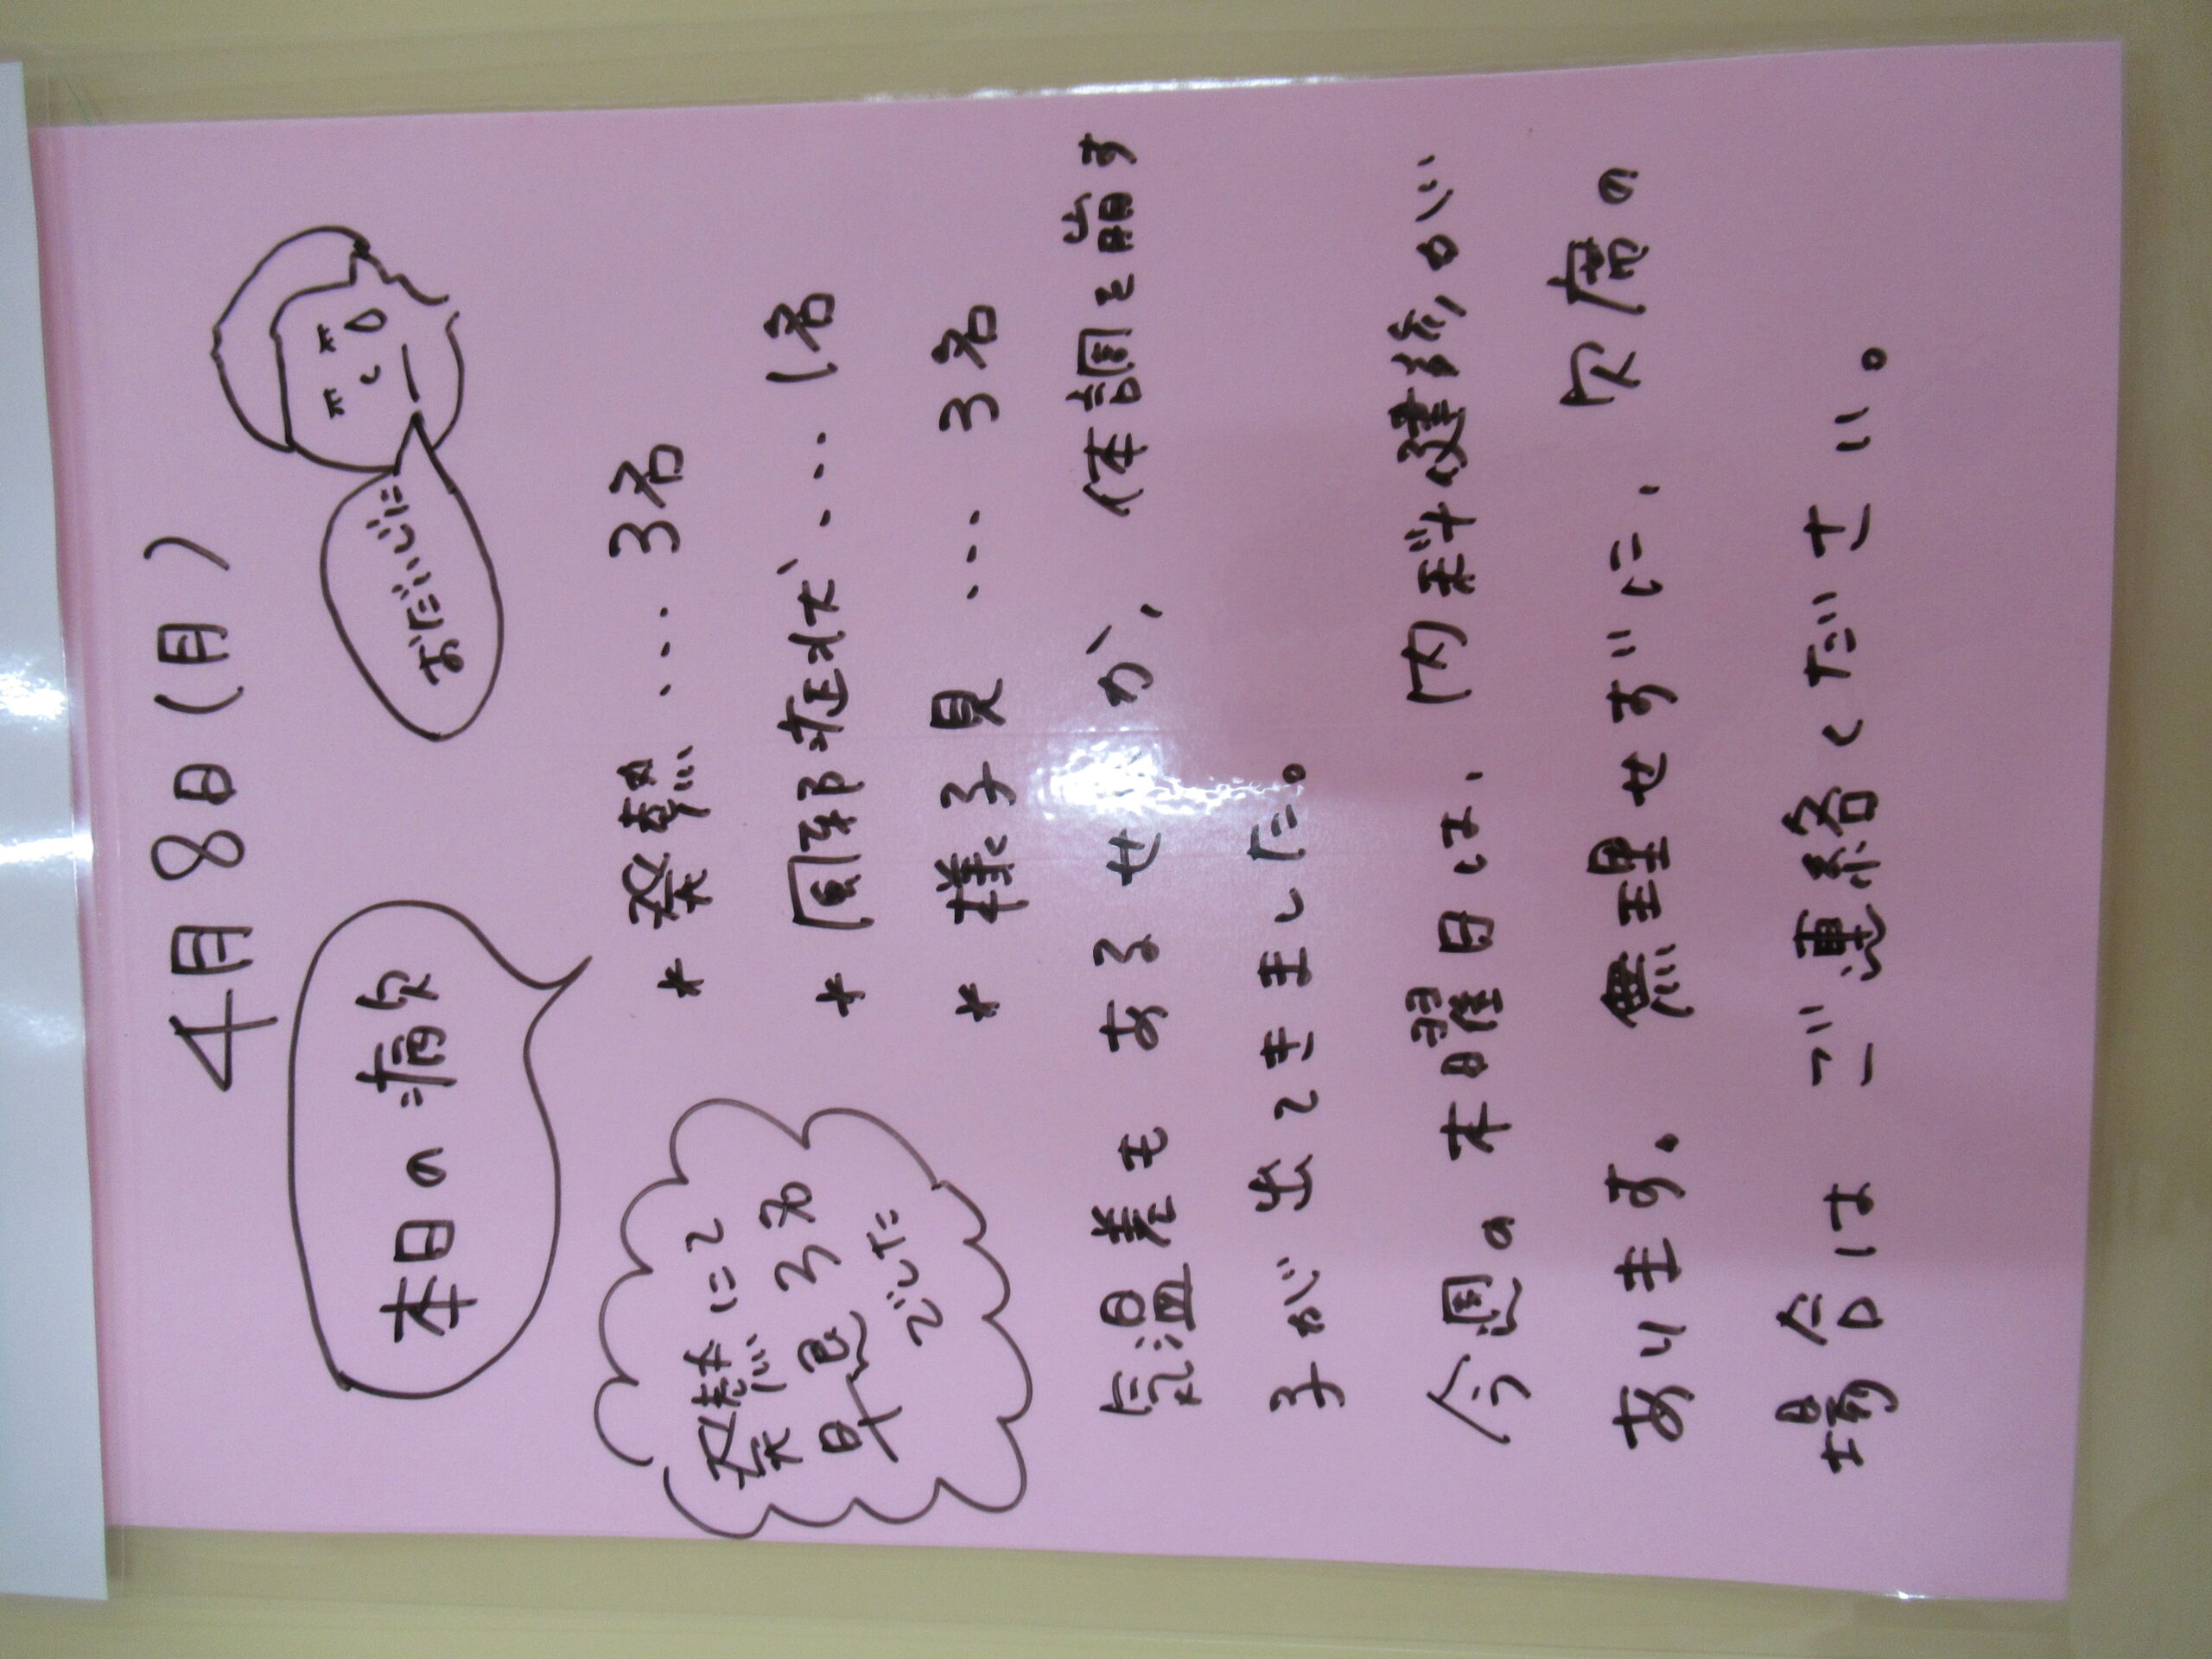 4月8日(月)
本日の病欠
おだいじに
* 発熱 ... 3名
* 胃部症状 ... 1名
* 様子見 ... 3名
発熱にて
早退3名
でした
気温差も あるせいか、体調を崩す
子が出てきました。
今週の木曜日は、内科健診が
あります。無理せずに、欠席の
場合はご連絡ください。